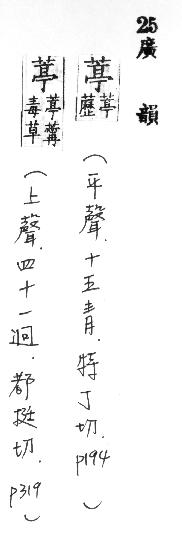 25廣韻
葶葶藶(平聲.十五青.特丁切.p194)
葶葶藭毒草(上聲.四十一迥.都挺切.p319)